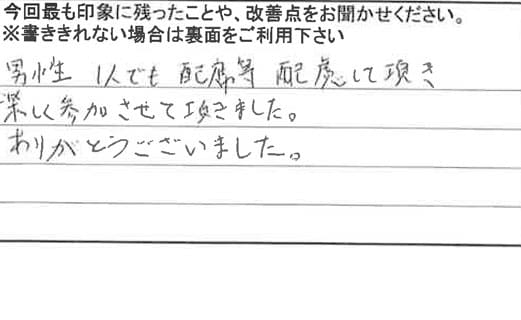 今回最も印象に残ったことや、改善点をお聞かせください。
※書ききれない場合は裏面をご利用下さい
男性 1人でも 配席等 配慮して頂き
楽しく参加させて頂きました。
ありがとうございました。